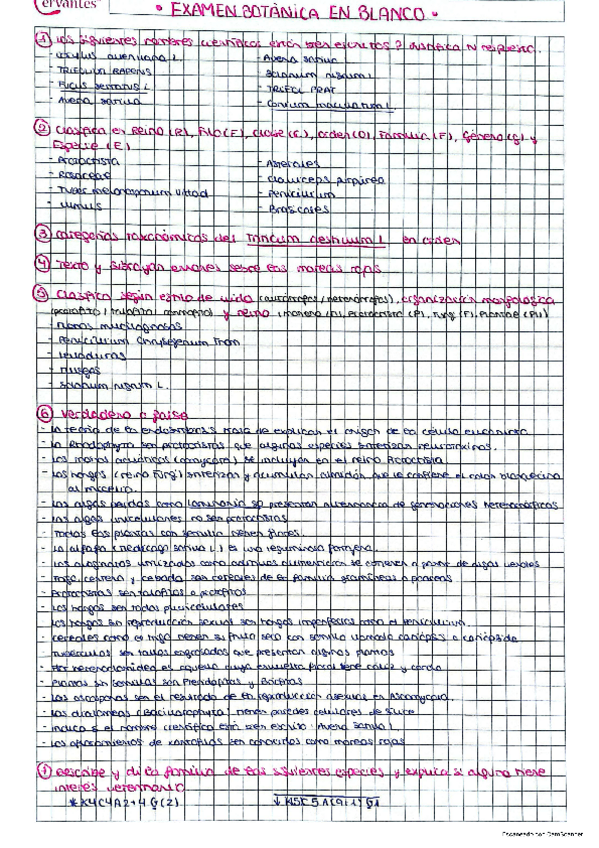 Cervantes
• EXAMEN BOTÁNICA EN BLANCO •
① Los siguientes nombres científicos están bien escritos? Justifica tu respuesta.
- Corylus avellana L. - Avena sativa
- TRIFOLIUM REPENS - Solanum nigrum L
- Fucus serratus L - TRIFOL PRAT
- Avena sativa - Conium maculatum L.
② Clasifica en Reino (R), Filo (F), Clase (C), Orden (O), Familia (F), Género (G) y
Especie (E)
- Protoctista - Asterales
- Rosaceae - Claviceps purpurea
- Tuber melanosporum Vittad - Penicillium
- Ulmus - Brasicales
③ Categorías taxonómicas del Triticum aestivum L en orden
④ Texto y subrayar errores sobre las mareas rojas
⑤ Clasifica según estilo de vida (autótrofos/heterótrofos), organización morfológica
(protofito/talofito/cormofito) y reino (Monera (M), Protoctista (P), Fungi (F), Plantae (Pl))
- Mohos mucilaginosos
- Penicillium Chrysogenum Thom
- Levaduras
- Musgos
- Solanum nigrum L.
⑥ Verdadero o falso
- La teoría de la endosimbiosis trata de explicar el origen de la célula eucariota
- La Rhodophyta son protoctistas que algunas especies sintetizan neurotoxinas.
- Los mohos acuáticos (oomycota) se incluyen en el reino Protoctista
- Los hongos (reino Fungi) sintetizan y acumulan almidón que le confiere el color blanquecino
al micelio.
- Las algas pardas como Laminaria sp presentan alternancia de generaciones heteromórficas
- Las algas unicelulares no son protoctistas
- Todas las plantas con semilla tienen flores.
- La alfalfa (Medicago sativa L.) es una leguminosa forrajera.
- Los alginatos utilizados como aditivos alimentarios se obtienen a partir de algas verdes
- Trigo, centeno y cebada son cereales de la familia gramíneas o poáceas
- Protoctistas son talofitos o protofitos
- Los hongos son todos pluricelulares
- Los hongos sin reproducción sexual son hongos imperfectos como el Penicillium.
- Cereales como el trigo tienen su fruto seco con semilla llamado cariopsis o cariópside
- Tubérculos son tallos engrosados que presentan algunas plantas
- Flor heteroclamídea es aquella cuya envuelta floral tiene cáliz y corola
- Plantas sin semillas son Pteridofitas y Briofitas
- Las ascosporas son el resultado de la reproducción asexual en Ascomycota.
- Las diatomeas (Bacillariophyta) tienen paredes celulares de sílice
- Indica si el nombre científico está bien escrito: Avena Sativa L
- Los afloramientos de xantofitas son conocidos como mareas rojas
⑦ Describe y di la familia de las siguientes especies y explica si alguna tiene
interés veterinario
* K4C4A2+4G(2) ↓ K(5)C5A(9)+1G1
Escaneado con CamScanner